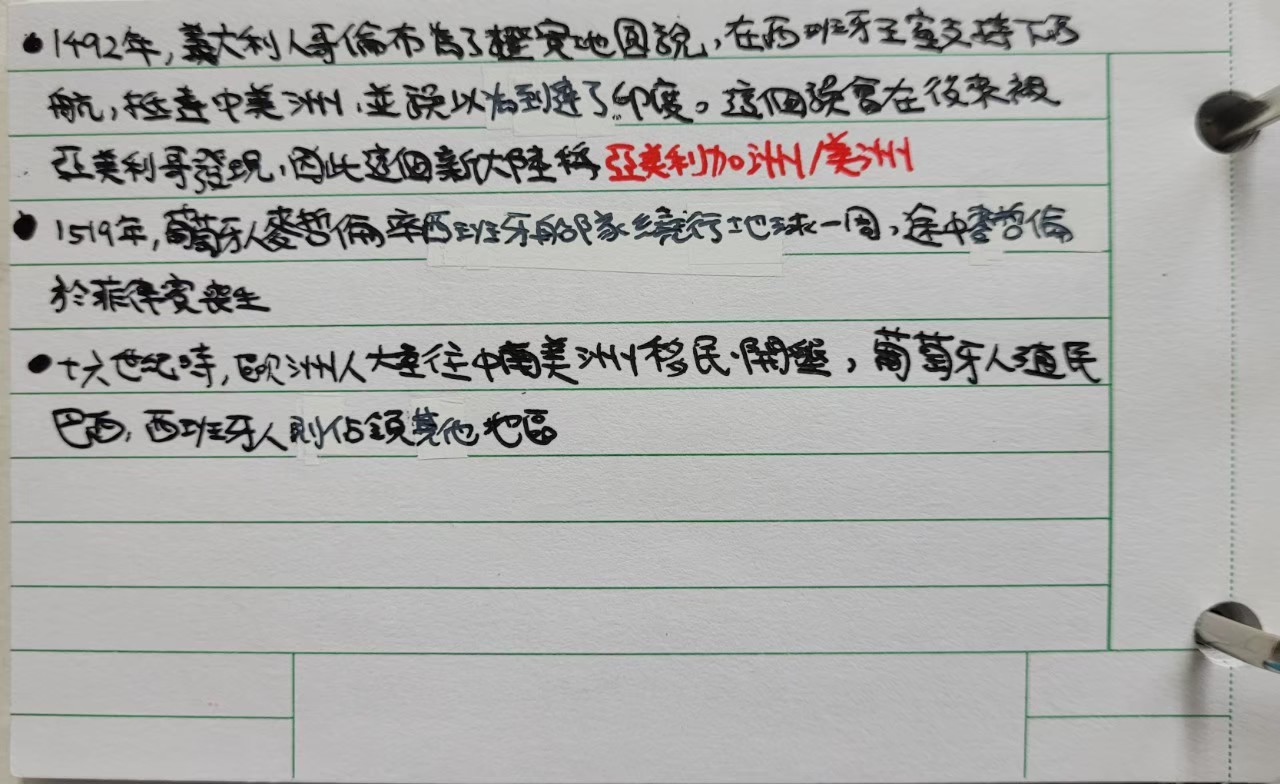 ●1492年,義大利人哥倫布為了證實地圓說,在西班牙王室支持下西
航,抵達中美洲,並誤以為到達了印度。這個誤會在後來被
亞美利哥發現,因此這個新大陸稱亞美利加洲/美洲
●1519年,葡萄牙人麥哲倫率西班牙船隊繞行地球一周,途中麥哲倫
於菲律賓喪生
●十六世紀時,歐洲人大量往中南美洲移民、開墾,葡萄牙人殖民
巴西,西班牙人則佔領其他地區